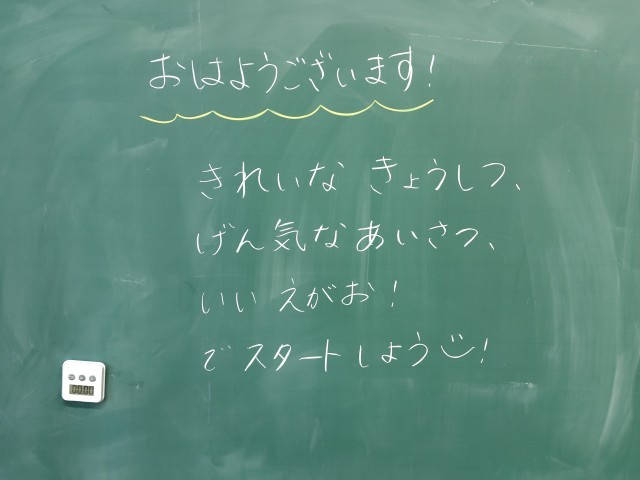 おはようございます!
きれいな きょうしつ、
げん気な あいさつ、
いい えがお!
で スタート しよう!
00:00